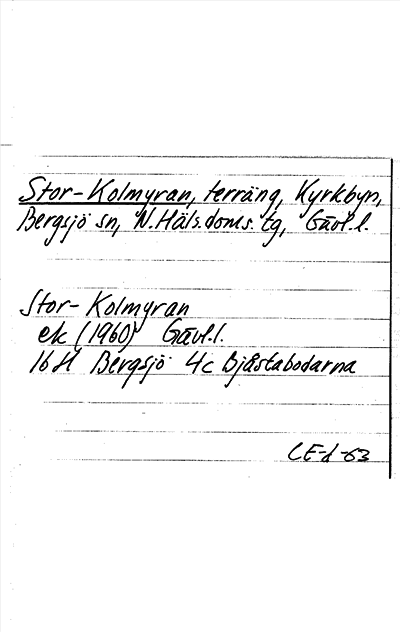 Stor-Kolmyran, terräng, Kyrkbyn,
Bergsjö sn, N. Häls. doms. tg, Gävl. l.
Stor-Kolmyran
ek (1960) Gävl. l.
16 H Bergsjö 4c Bjåstabodarna